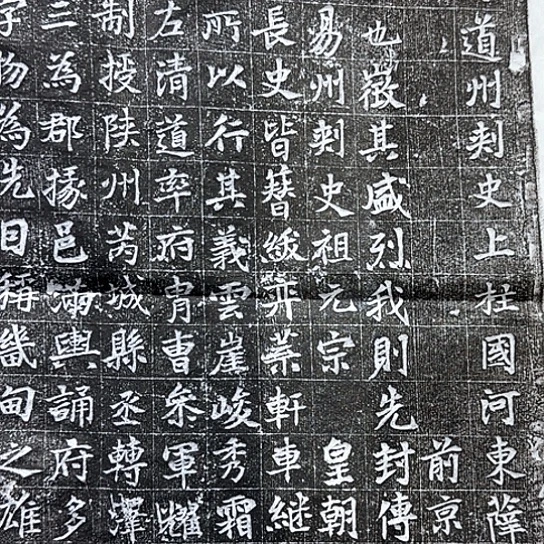 道州刺史上柱國河東薛
前京
也徵其盛烈我則先封傳
易州刺史祖元宗 皇朝
長史皆簪紱弈葉軒車継
所以行其義雲崖峻秀霜
左清道率府胄曹叅軍耀
制授陝州芮城縣丞轉澤
三為郡掾邑滿輿誦府多
物為先日稱畿甸之雄